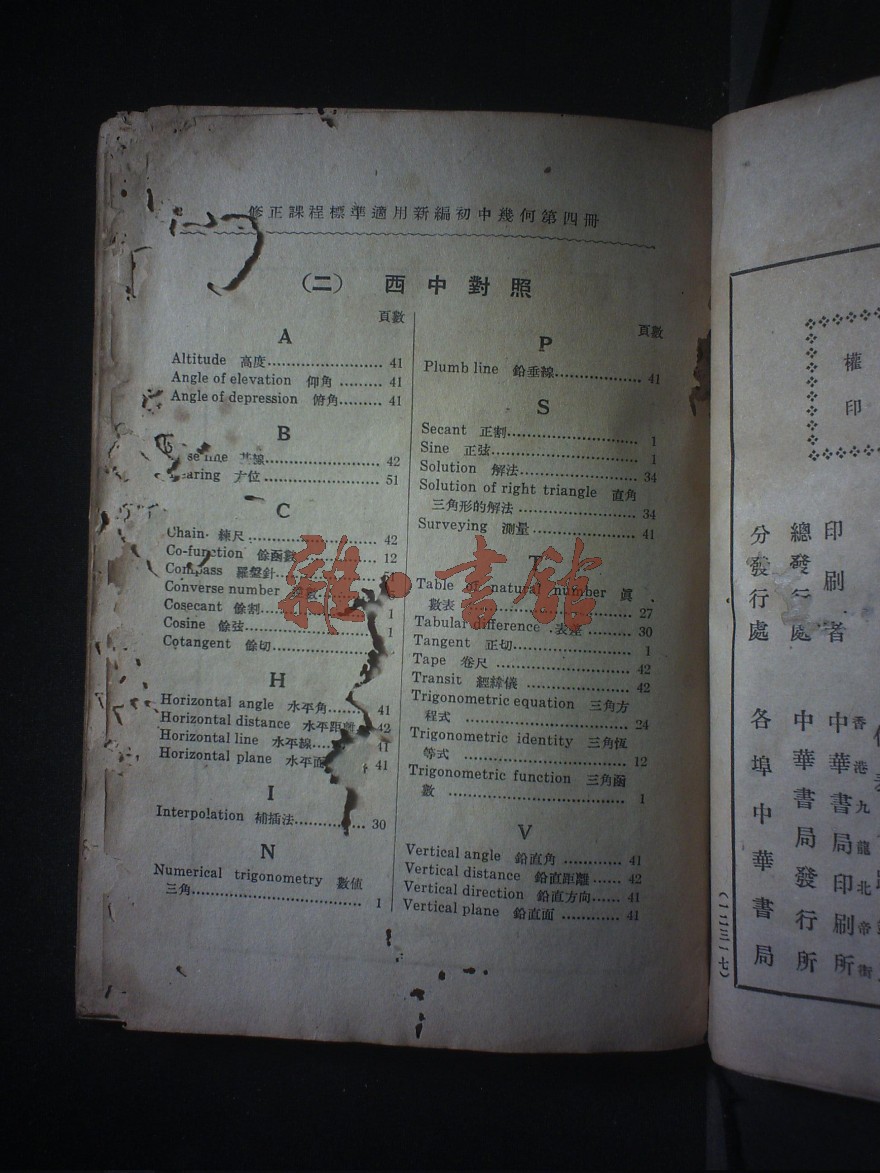 修正課程標準適用新編初中幾何第四冊
(二) 西中對照
頁數
A
Altitude 高度 41
Angle of elevation 仰角 41
Angle of depression 俯角 41
B
line 線 42
方位 51
C
Chain 鍊尺 42
Co-function 餘函數 12
Compass 羅盤針
Converse number
Cosecant 餘割 1
Cosine 餘弦 1
Cotangent 餘切
H
Horizontal angle 水平角 41
Horizontal distance 水平距離 42
Horizontal line 水平線 41
Horizontal plane 水平面 41
I
Interpolation 補插法 30
N
Numerical trigonometry 數値
三角 1
頁數
P
Plumb line 鉛垂線 41
S
Secant 正割 1
Sine 正弦 1
Solution 解法 34
Solution of right triangle 直角
三角形的解法 34
Surveying 測量 41
T
Table of natural number 眞
數表 27
Tabular difference 表差 30
Tangent 正切 1
Tape 卷尺 42
Transit 經緯儀 42
Trigonometric equation 三角方
程式 24
Trigonometric identity 三角恆
等式 12
Trigonometric function 三角函
數 1
V
Vertical angle 鉛直角 41
Vertical distance 鉛直距離 42
Vertical direction 鉛直方向 41
Vertical plane 鉛直面 41
雜·書館
權
印
香港九龍北帝街
印刷者 中華書局印刷所
總發行處 中華書局發行所
分發行處 各埠中華書局
(一二三一七)